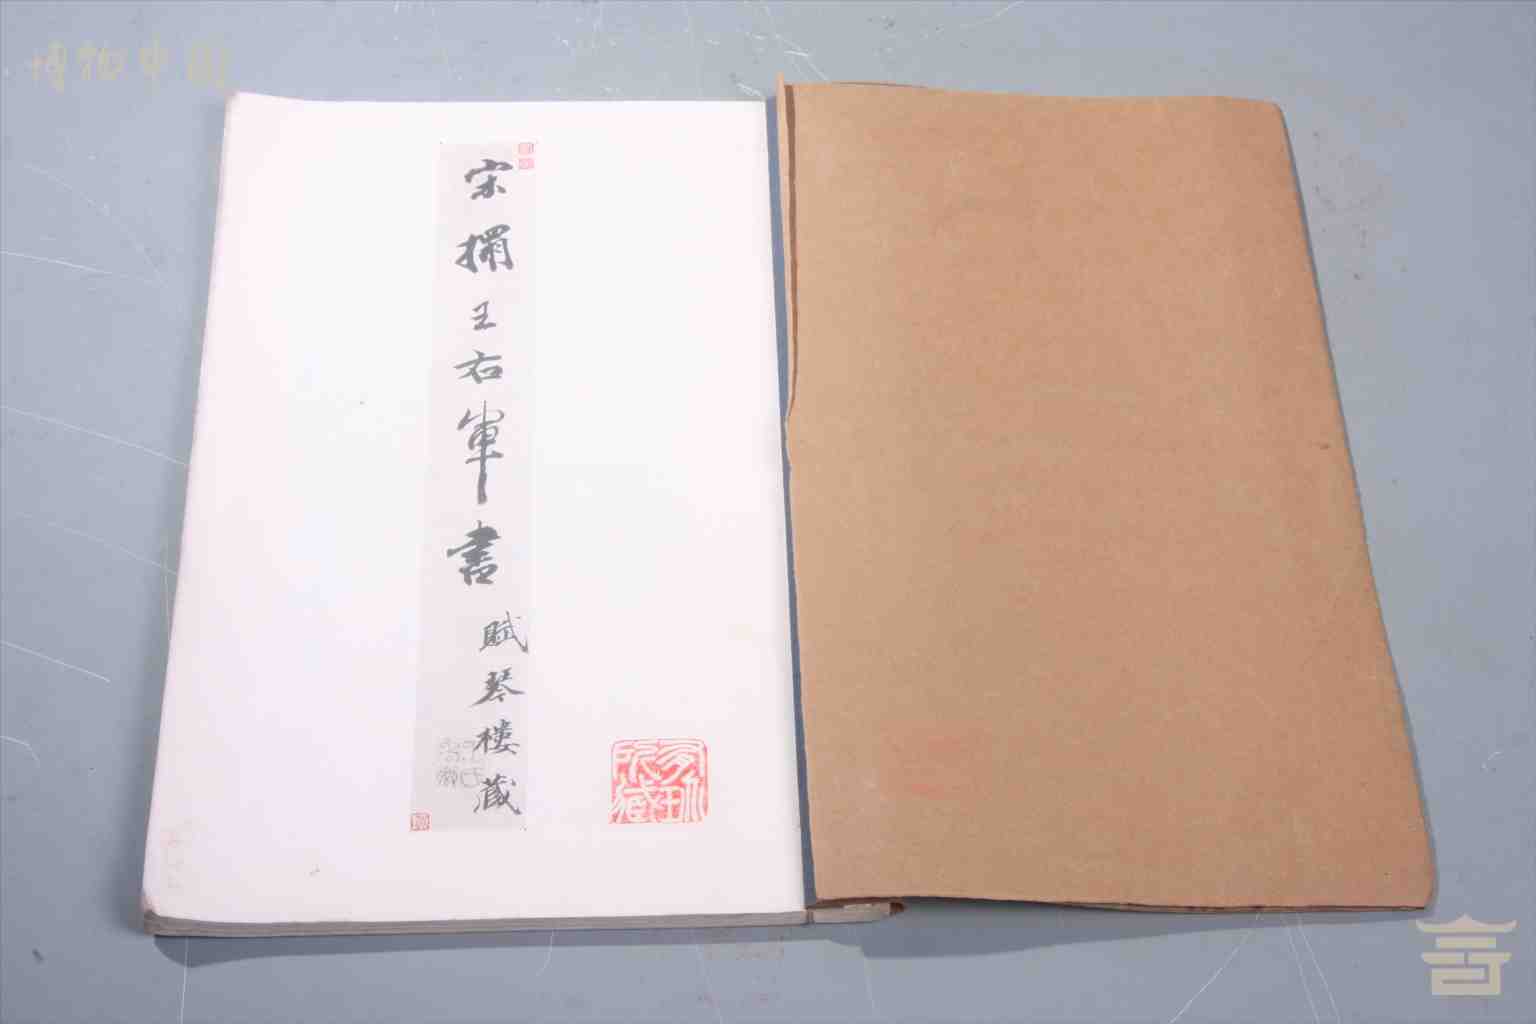 博物中国
宋搨王右軍書
賦琴樓藏